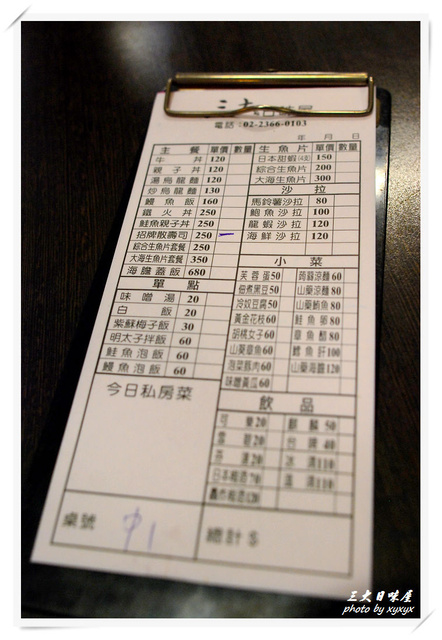 三大日味屋
電話:02-2366-0103
年 月 日
主 餐 單價 數量
牛 丼 120
親 子 丼 120
湯烏龍麵 120
炒烏龍麵 130
鰻魚飯 160
鐵火丼 250
鮭魚親子丼 250
招牌散壽司 250
綜合生魚片套餐 250
大海生魚片套餐 350
海膽蓋飯 680
單 點
味噌湯 20
白 飯 20
紫蘇梅子飯 30
明太子拌飯 60
鮭魚泡飯 60
鰻魚泡飯 60
今日私房菜
生魚片 單價 數量
日本甜蝦(4支) 150
綜合生魚片 200
大海生魚片 300
沙 拉
馬鈴薯沙拉 80
鮑魚沙拉 100
龍蝦沙拉 120
海鮮沙拉 120
小 菜
芙蓉蛋 50 蒟蒻涼麵 60
佃煮黑豆 50 山藥涼麵 60
冷奴豆腐 50 山藥鮪魚 80
黃金花枝 60 鮭魚卵 80
胡桃女子 60 章魚醋 80
山藥章魚 60 鱈魚肝 100
泡菜豚肉 60 山藥海膽 120
味噌黃瓜 60
飲 品
可 樂 20 麒 麟 50
雪 碧 20 台 啤 40
芬 達 20 冰 清 110
日本梅酒 70 溫 清 110
梅酒 120
桌號 中1
總計 $
三大日味屋
photo by xyxyx